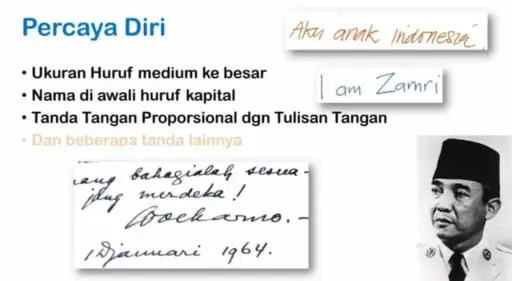 Percaya Diri
Aku anak Indonesia
• Ukuran Huruf medium ke besar
I am Zamri
• Nama di awali huruf kapital
• Tanda Tangan Proporsional dgn Tulisan Tangan
• Dan beberapa tanda lainnya
bahagialah sesua-
jang merdeka!
Soekarno.-
1 Djanuari 1964.